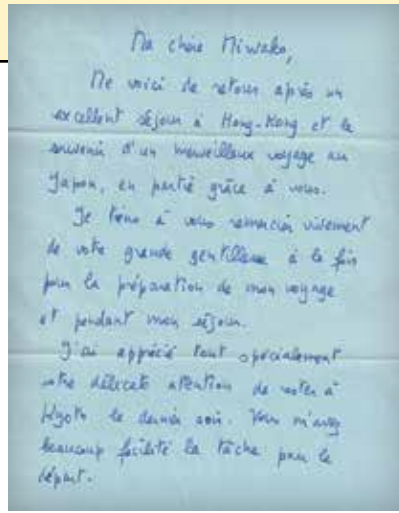 Ma chère Miwako,
Me voici de retour après un
excellent séjour à Hong-Kong et le
souvenir d'un merveilleux voyage au
Japon, en partie grâce à vous.
Je tiens à vous remercier vivement
de votre grande gentillesse à la fois
pour la préparation de mon voyage
et pendant mon séjour.
J'ai apprécié tout spécialement
votre délicate attention de rester à
Kyoto le dernier soir. Vous m'avez
beaucoup facilité la tâche pour le
départ.